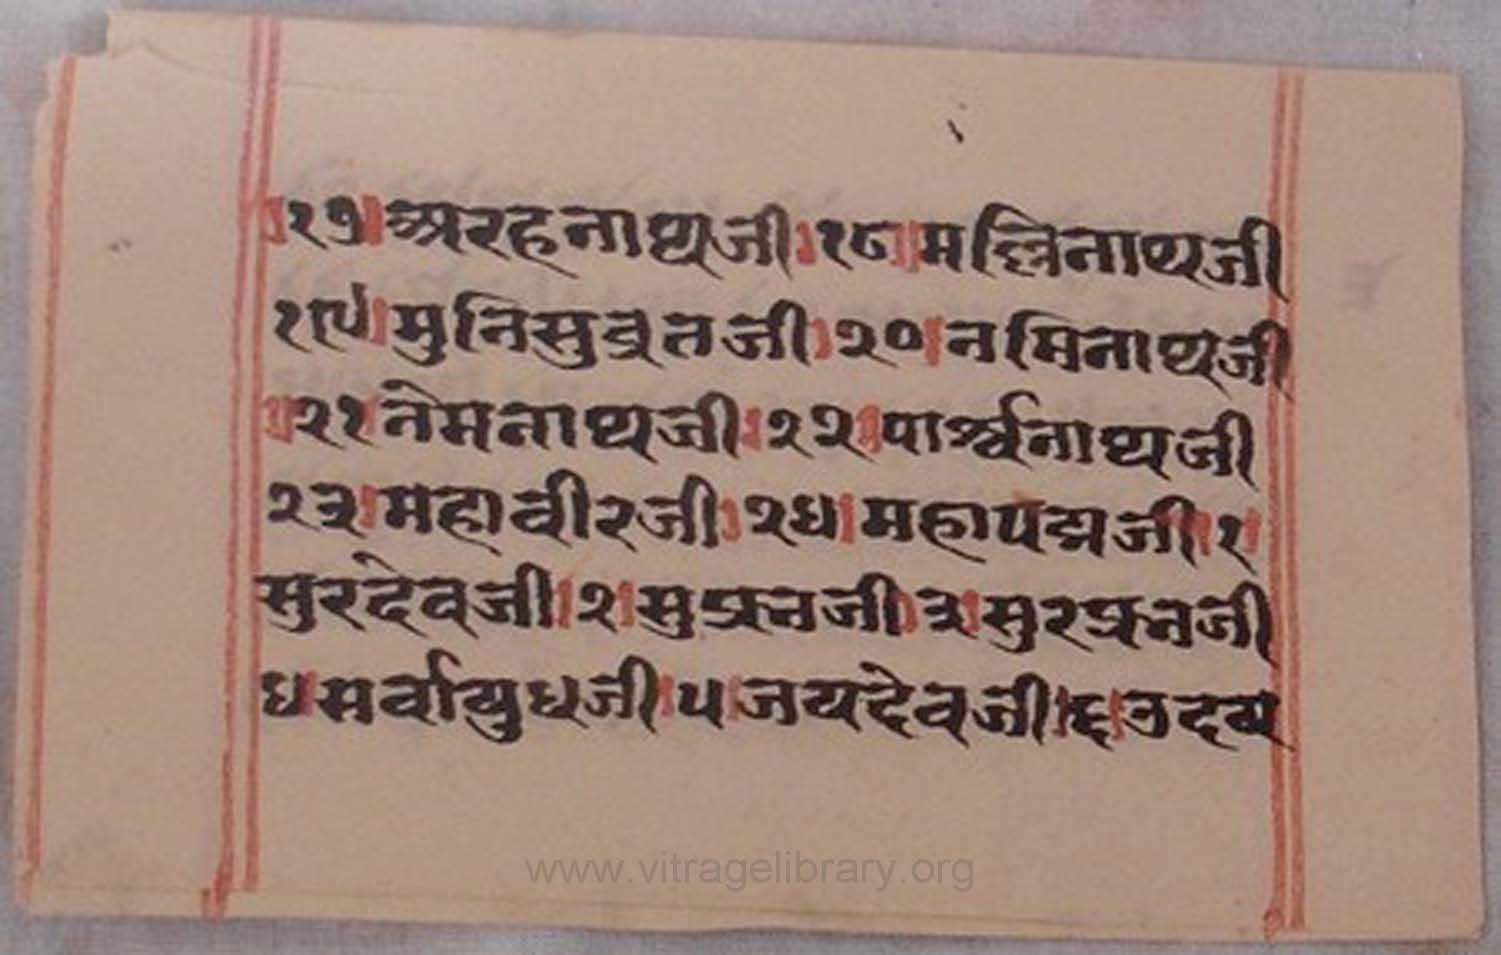 ।१७। अरहनाथजी।१८। मल्लिनाथजी
१९। मुनिसुव्रतजी।२०। नमिनाथजी
।२१। नेमनाथजी।२२। पार्श्वनाथजी
२३। महावीरजी।२४। महापद्मजी।१।
सुरदेवजी।२। सुप्रभजी।३। सुरप्रभजी
४। सर्वायुधजी।५। जयदेवजी।६। उदय
www.vitragelibrary.org